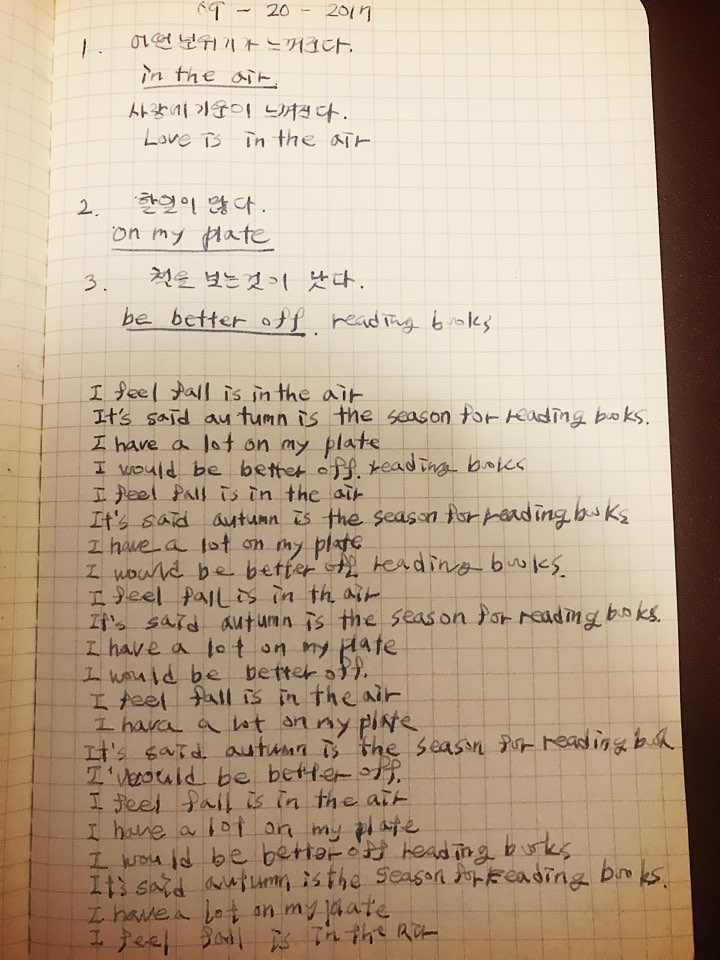 09 - 20 - 2017
1. 어떤 분위기가 느껴진다.
in the air.
사랑에 기운이 느껴진다.
Love is in the air
2. 할일이 많다.
on my plate
3. 책을 보는것이 낫다.
be better off. reading books
I feel fall is in the air
It's said autumn is the season for reading books.
I have a lot on my plate
I would be better off. reading books
I feel fall is in the air
It's said autumn is the season for reading books
I have a lot on my plate
I would be better off reading books.
I feel fall is in th air
It's said autumn is the season for reading books.
I have a lot on my plate
I would be better off.
I feel fall is in the air
I hava a lot on my plate
It's said autumn is the season for reading book
I would be better off.
I feel fall is in the air
I have a lot on my plate
I would be better off reading books
It's said autumn is the season for reading books.
I have a lot on my plate
I feel fall is in the air